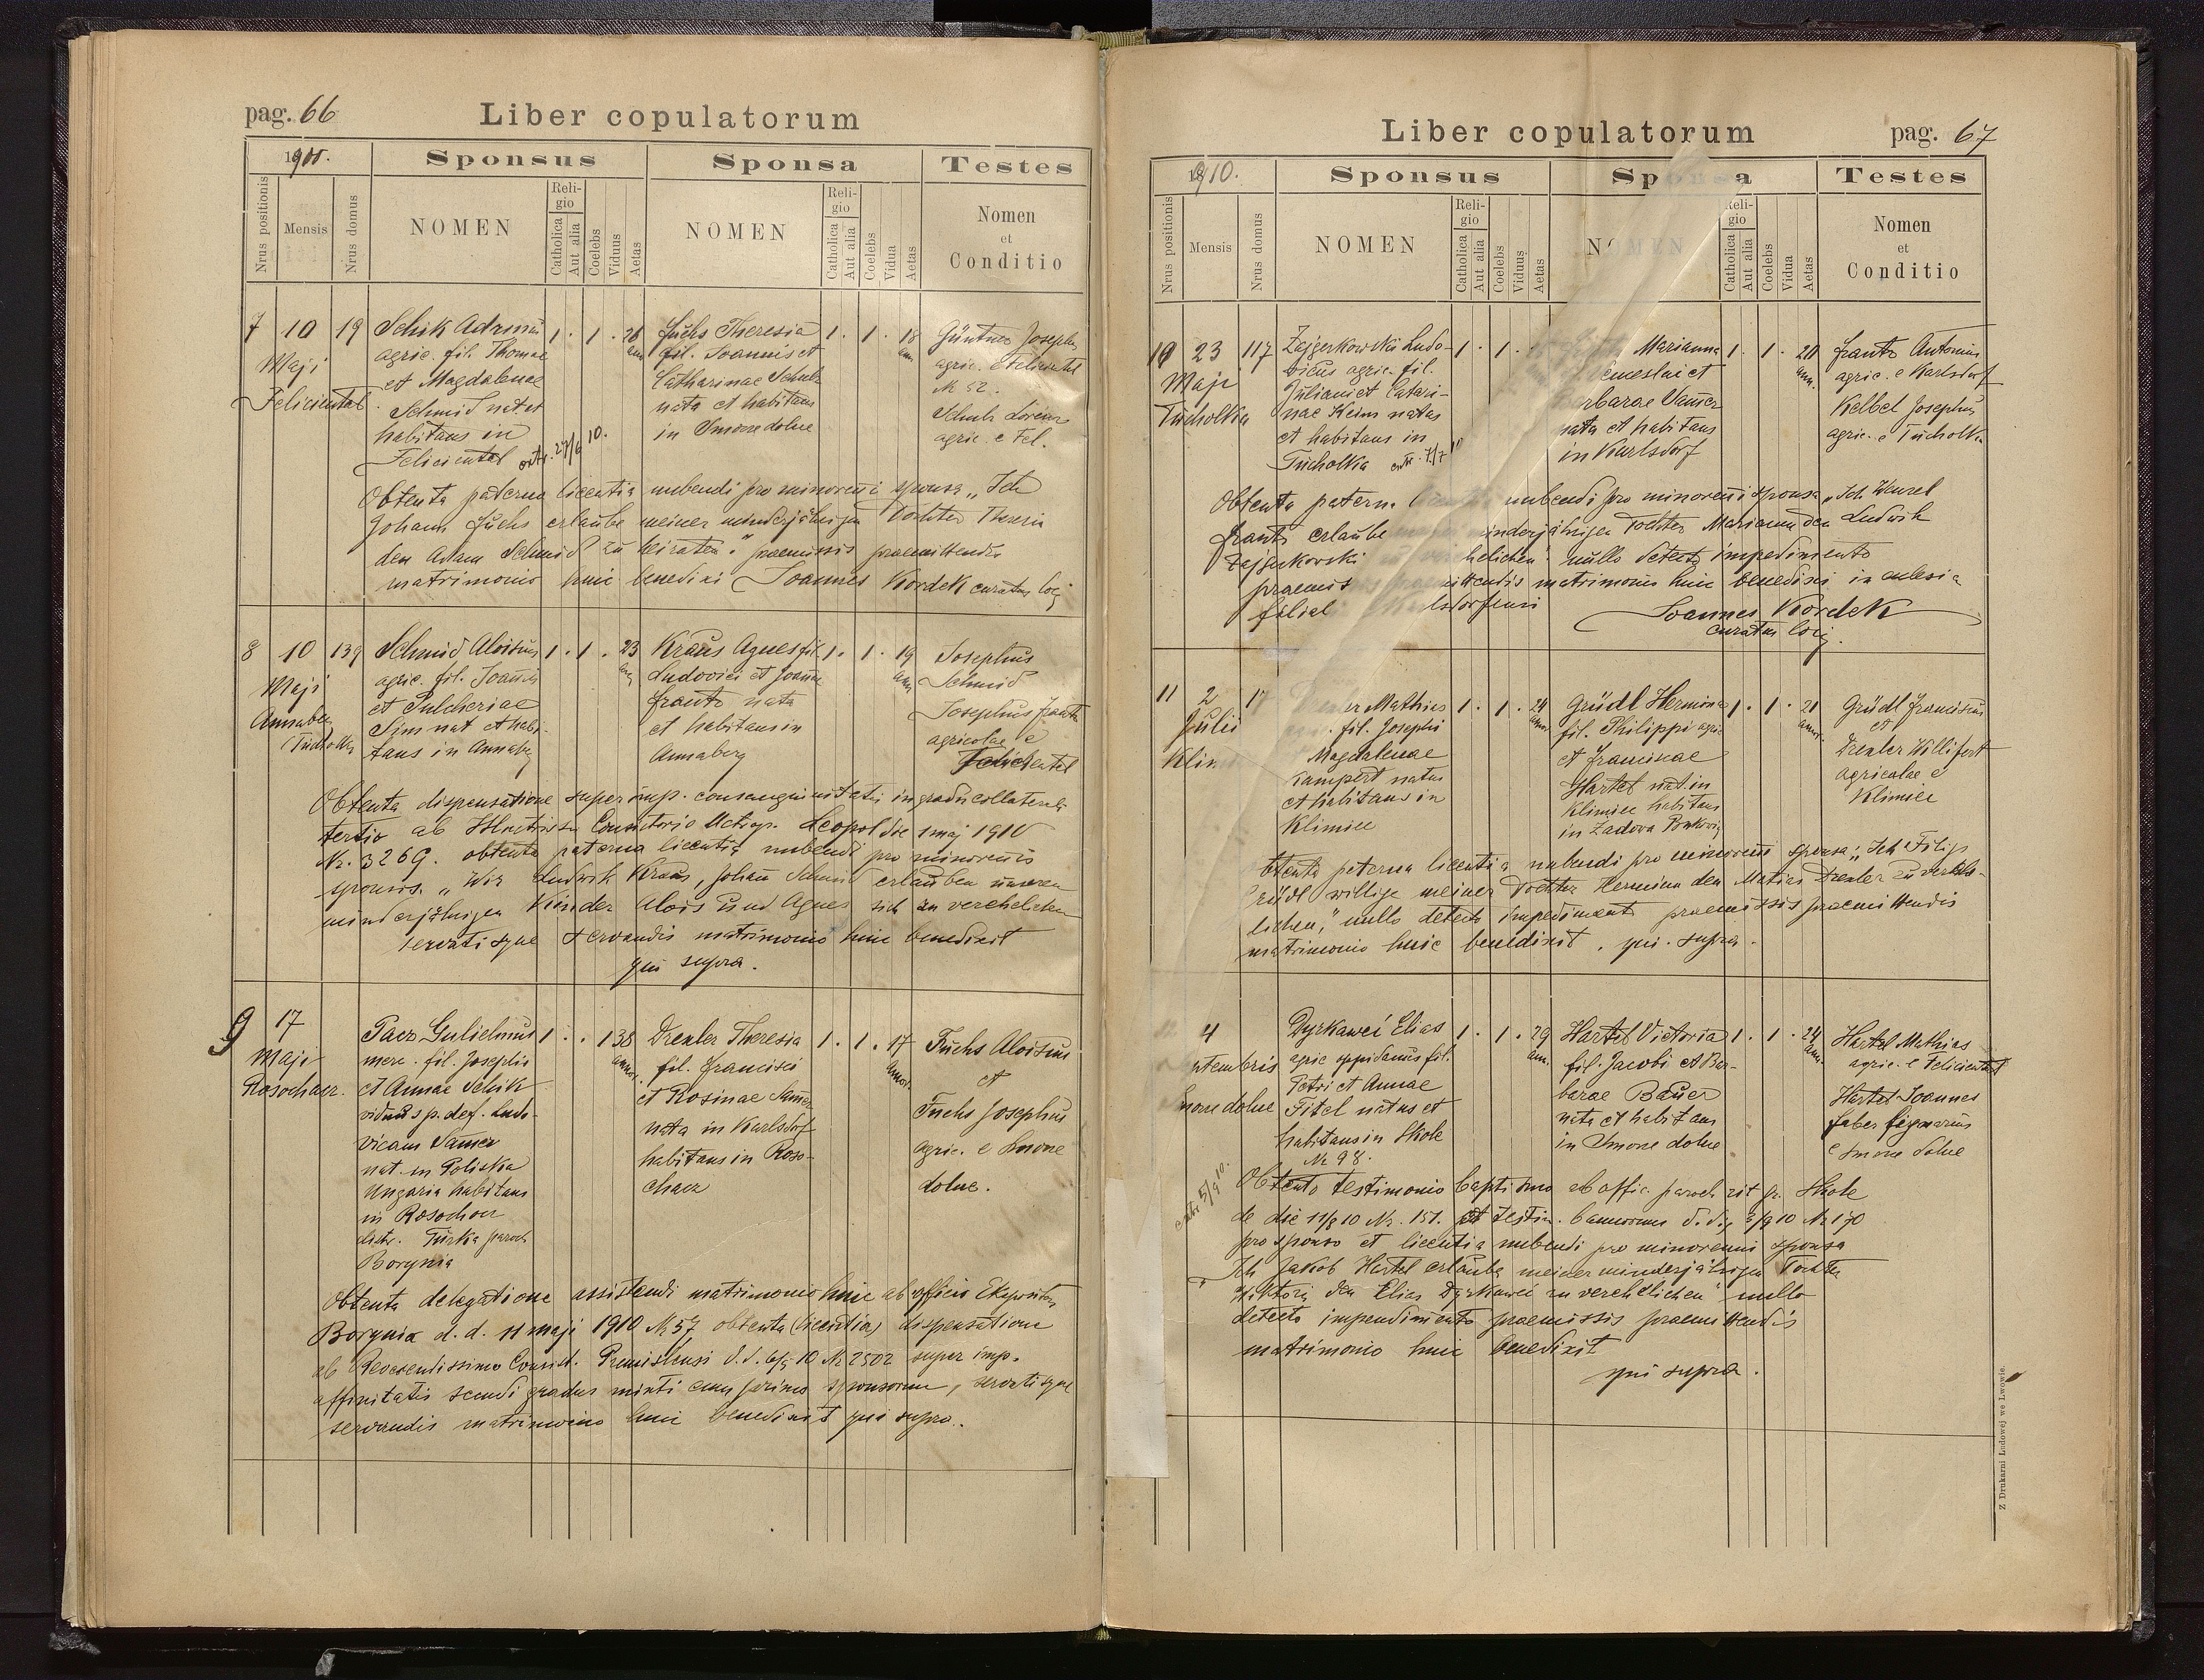 pag. 66
Liber copulatorum
1910.
Sponsus
Sponsa
Testes
Nrus positionis
Mensis
Nrus domus
NOMEN
Religio
Catholica
Aut alia
Coelebs
Viduus
Aetas
NOMEN
Religio
Catholica
Aut alia
Coelebs
Vidua
Aetas
Nomen
et
Conditio
7 10 19
Maji
Feliciental
Schik
agric. fil. Thomae
et Magdalenae
Schmid nat et
habitans in
Felicientel 27/6 10.
1 . 1 . 26
Fuchs Theresia
fil. Joannis et
Catharinae Schulz
nata et habitans
in Smorze dolne
1 . 1 . 18
ann.
Güntner Josephus
agric. e Felicientel
№ 52.
Schulz Lorenz
agric. e Fel.
Obtenta paterna licentia nubendi pro minorenni sponsa „Ich
Johann Fuchs erlaube meiner minderjährigen Tochter Theresia
den Adam Schmid zu heiraten." praemissis praemittendis
matrimonio huic benedixi Joannes Kordek curatus loci
8 10 139
Maji
Annaberg
Tucholka
Schmid Aloisius
agric. fil. Joannis
et Pulcheriae
Sim nat et habi-
tans in Annaberg
1 . 1 . 23
Kraus Agnes fil.
Ludovici et Joannae
Frantz nata
et habitans in
Annaberg
1 . 1 . 19
ann.
Josephus
Schmid
Josephus Frantz
agricolae e
Felicientel
Obtenta dispensatione super imp. consanguinitatis in gradu collaterali
tertio ab Illustrissimo Consistorio Metrop. Leopol die 1 maj 1910
Nr. 3269. obtenta paterna licentia nubendi pro minorenis
sponsis. „Wir Ludwik Kraus, Johann Schmid erlauben unseren
minderjährigen Kinder Alois und Agnes sich zu verehelichen
servatisque servandis matrimonio huic benedixit
qui supra.
9 17
Maji
Rosochacz.
Pacz Gulielmus
merc. fil. Josephi
et Annae Schik
viduus p. def. Ludo-
vicam Samer
nat. in Poliska
Ungaria habitans
in Rosochacz
distr. Turka paroch.
Borynia
1 . . 1 38
annor.
Drexler Theresia
fil. Francisci
et Rosinae Samer
nata in Karlsdorf
habitans in Roso-
chacz
1 . 1 . 17
annor.
Fuchs Aloisius
et
Fuchs Josephus
agric. e Smorze
dolne.
Obtenta delegatione assistendi matrimonio huic ab officio Expositurae
Borynia d. d. 11 maji 1910 № 57, obtenta (licentia) dispensatione
ab Reverendissimo Consist. Premisliensi d. d. 6/5 10 № 2502 super imp.
affinitatis secundi gradus mixti cum primo sponsorum, servatisque
servandis matrimonio huic benedixit qui supra.
Liber copulatorum
pag. 67
1910.
Sponsus
Sponsa
Testes
Nrus positionis
Mensis
Nrus domus
NOMEN
Religio
Catholica
Aut alia
Coelebs
Viduus
Aetas
NOMEN
Religio
Catholica
Aut alia
Coelebs
Vidua
Aetas
Nomen
et
Conditio
10 23 117
Maji
Tucholka
Zajgerkowski Ludo-
vicus agric. fil.
Juliani et Catari-
nae Keim natus
et habitans in
Tucholka 7/7 10
1 . 1 .
Marianna
Venceslai et
Barbarae Samer
nata et habitans
in Karlsdorf
1 . 1 . 20
ann.
Frantz Antonius
agric. e Karlsdorf
Kelbel Josephus
agric. e Tucholka
Obtenta paterna nubendi pro minorenni sponsa „Ich Wenzel
Frantz erlaube minderjährigen Tochter Marianna den Ludwik
Zajgerkowski verehelichen" nullo detecto impedimento
praemissis praemittendis matrimonio huic benedixi in eclesia
filiali Karlsdorfensi
Joannes Kordek
curatus loci.
11 2 17
Julii
Klim
Mathias
fil. Josephi
Magdalenae
Lampert natus
et habitans in
Klimiec
1 . 1 . 24
ann.
Grüdl Hermina
fil. Philippi agric.
et Franciscae
Hartel nat. in
Klimiec habitans
in Zadova Bukovin
1 . 1 . 21
annor.
Grüdl Franciscus
et
Drexler Willifort
agricolae e
Klimiec
Obtenta paterna licentia nubendi pro minorenni sponsa: „Ich Filip
Grüdl willige meiner Tochter Hermina den Matias Drexler zu verehe-
lichen", nullo detecto impedimento praemissis praemittendis
matrimonio huic benedixit. qui supra.
4
Septembris
Smorze dolne
Dyrkawei Elias
agric. oppidanus fil.
Petri et Annae
Titel natus et
habitans in Skole
№ 98.
1 . 1 . 29
ann.
Hartel Victoria
fil. Jacobi et Bar-
barae Bauer
nata et habitans
in Smorze dolne
1 . 1 . 24
ann.
Hartel Mathias
agric. e Felicientel
Hartel Joannes
faber lignarius
e Smorze dolne
5/9 10.
Obtento testimonio baptismo ab offic. paroch. rit. gr. Skole
de die 11/8 10 № 151. et testim. bannorum d. d. 2/9 10 № 170
pro sponso et licentia nubendi pro minorenni sponsa
„Ich Jakob Hartel erlaube meiner minderjährigen Tochter
Viktoria den Elias Dyrkawei zu verehelichen" nullo
detecto impendimento praemissis praemittendis
matrimonio huic benedixit
qui supra.
Z Drukarni Ludowej we Lwowie.